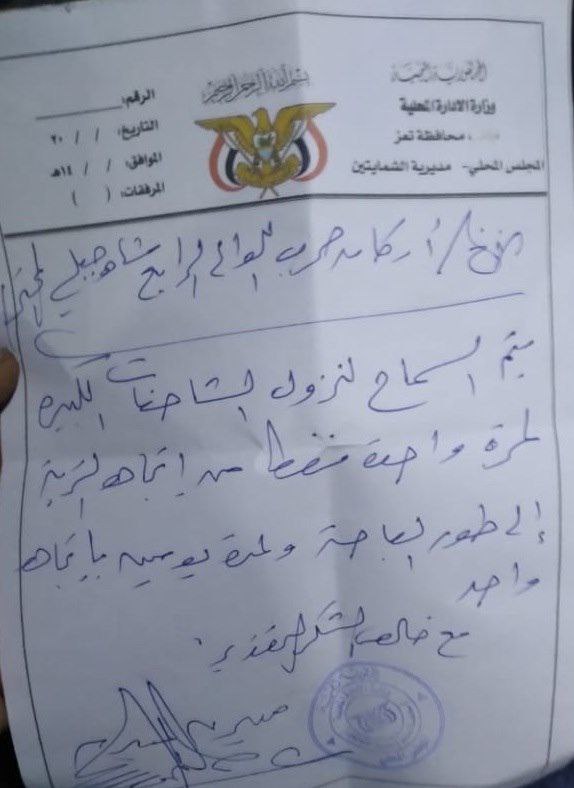 الجمهورية اليمنية
وزارة الادارة المحلية
محافظة تعز
المجلس المحلي - مديرية الشمايتين
بسم الله الرحمن الرحيم
الرقم:
التاريخ: / / ٢٠
الموافق: / / ١٤هـ
المرفقات: ( )
الأخ / أركان حرب اللواء الرابع مشاه جبلي المحترم
يتم السماح لنزول الشاحنات الكبيره
لمرة واحدة فقط من إتجاه التربة
إلى طور الباحة ولمدة يومين بإتجاه
واحد
مع خالص الشكر والتقدير،
مدير